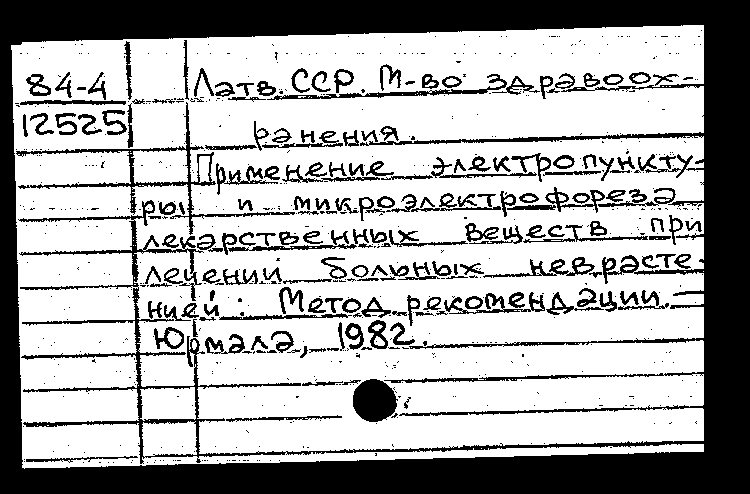 84-4
12525
Латв. ССР. М-во здравоох-
ранения.
Применение электропункту-
ры и микроэлектрофореза
лекарственных веществ при
лечении больных неврасте-
нией: Метод. рекомендации. —
Юрмала, 1982.